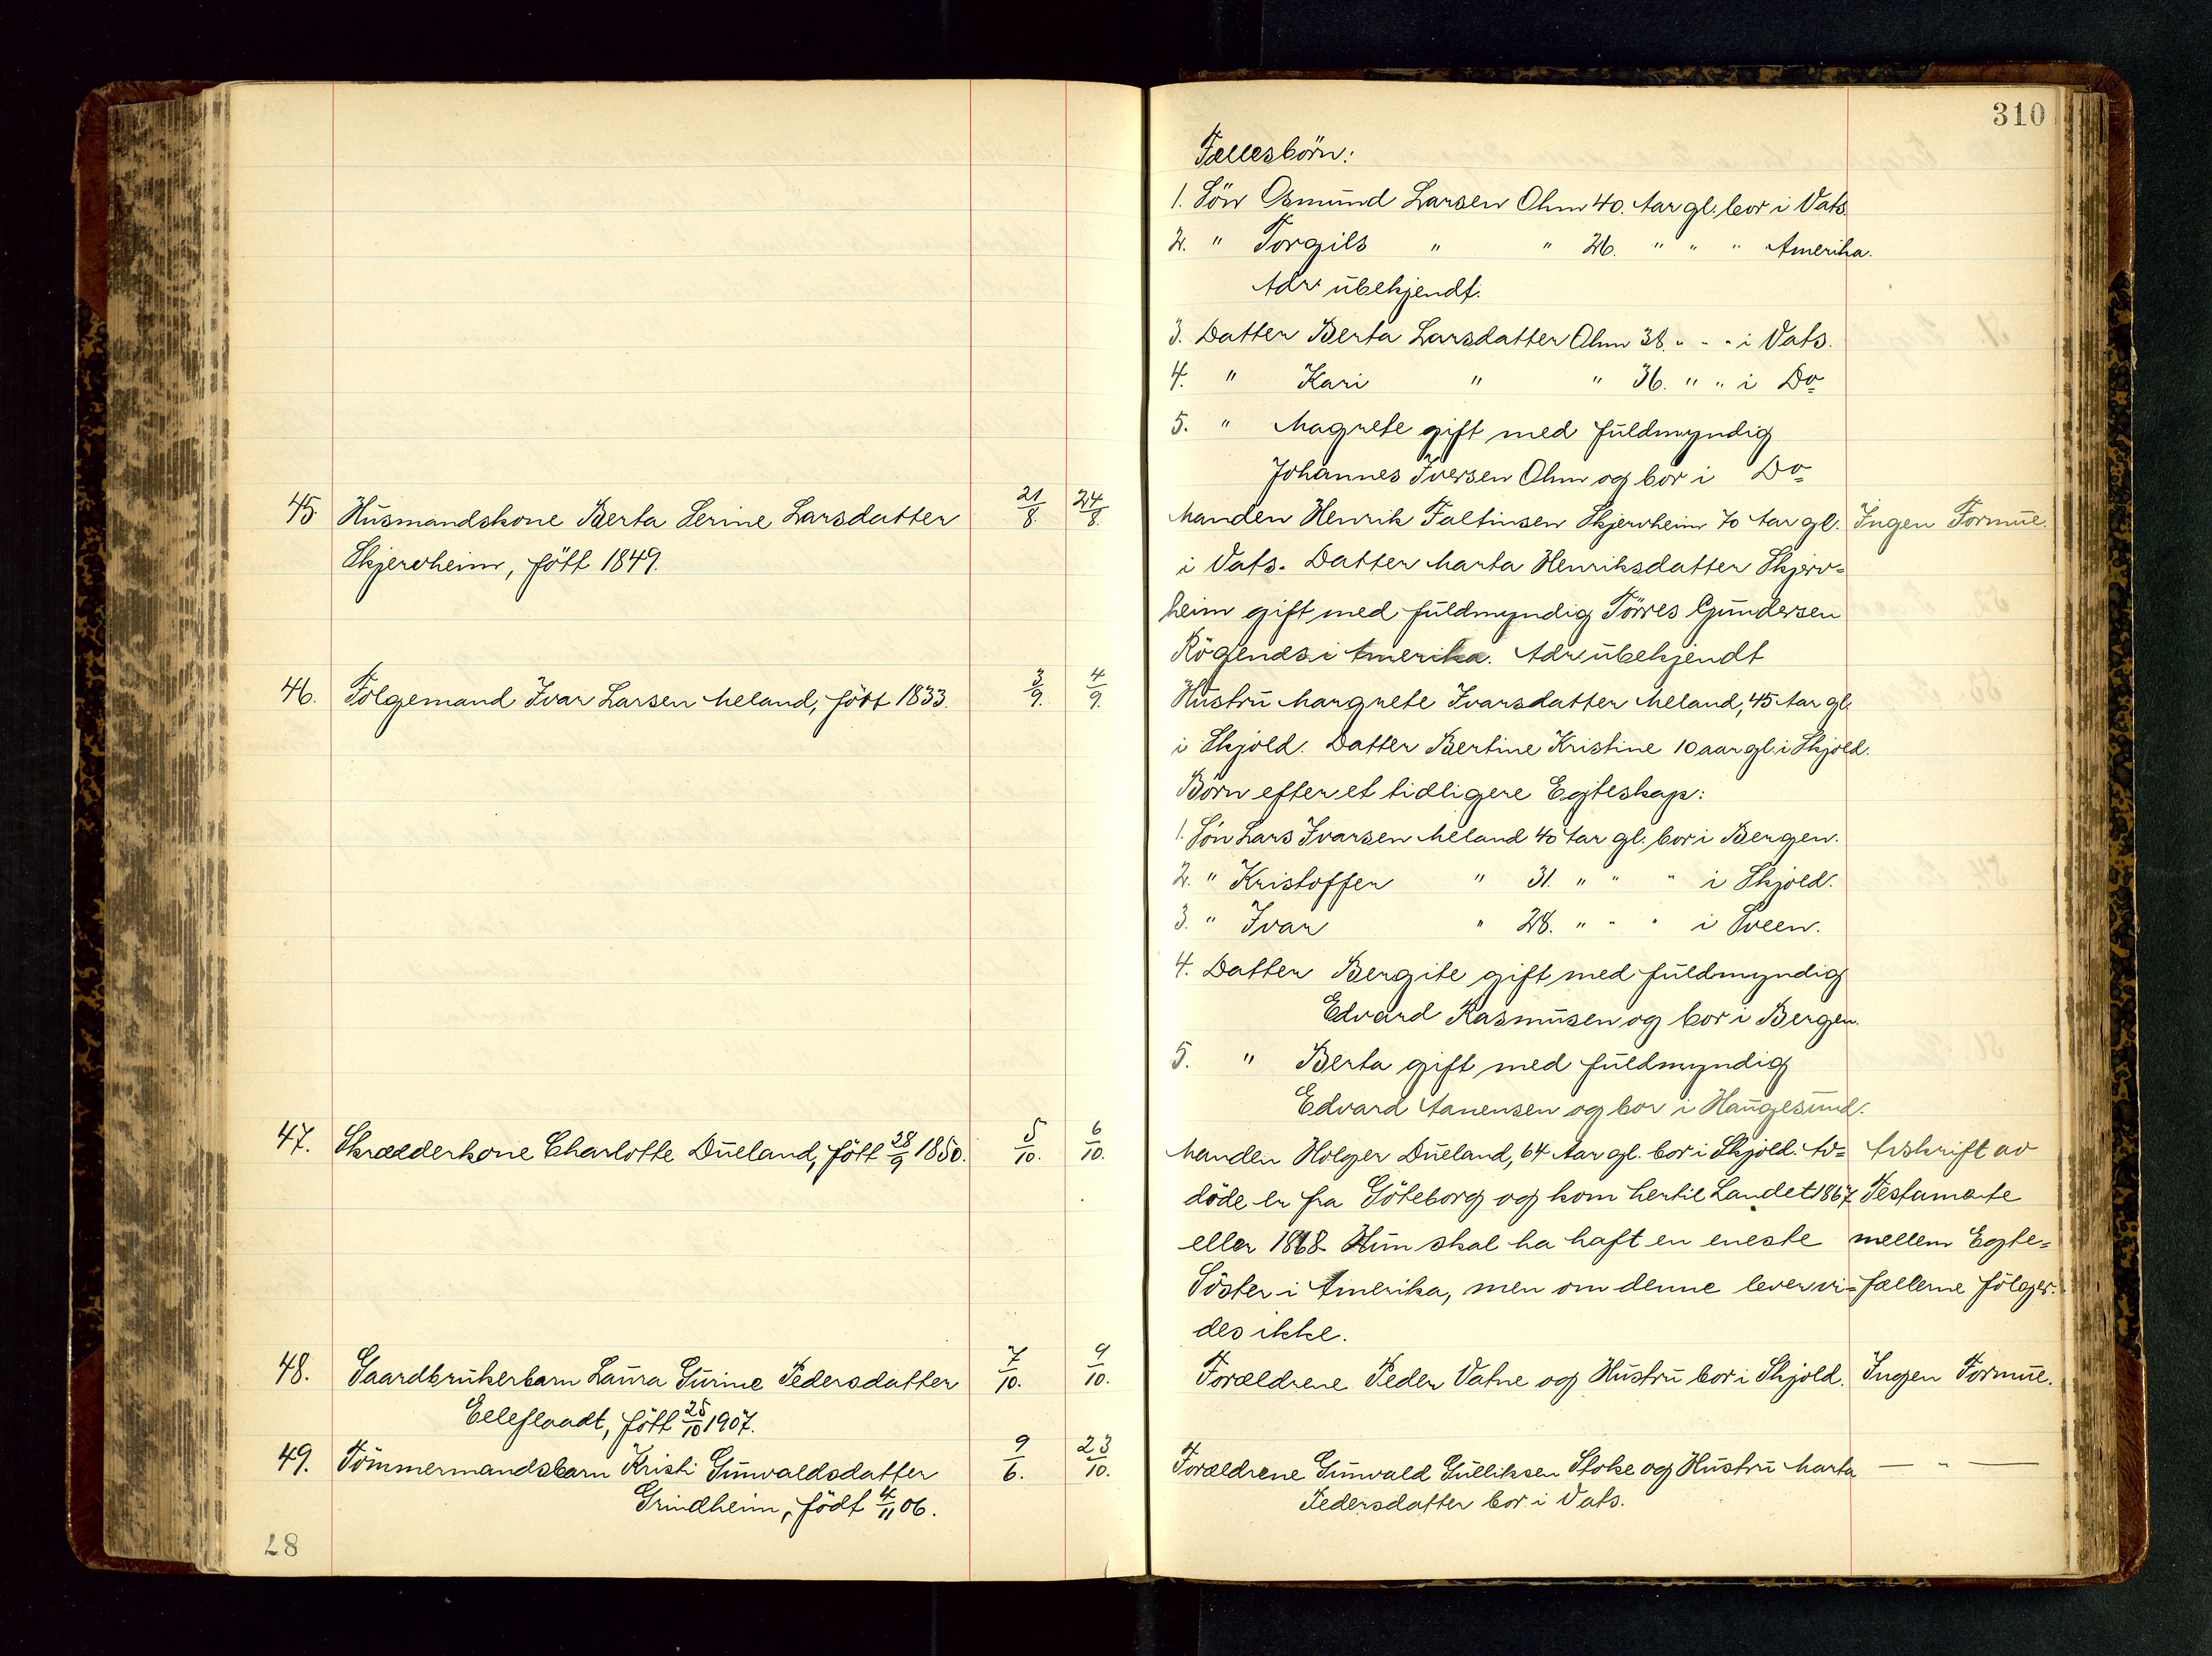 310
Fællesbörn:
1. Sön Osmund Larsen Ohm 40. Aar gl. bor i Vats
2. " Torgils " " 26. " " " Amerika.
Adr ubekjendt.
3. Datter Berta Larsdatter Ohm 38. " " " i Vats.
4. " Kari " " 36. " " i Do
5. " Magrete gift med fuldmyndig
Johannes Iversen Ohm og bor i Do
45. Husmandskone Berta Serine Larsdatter 21/8. 24/8. Manden Henrik Faltinsen Skjervheim 70 Aar gl. Ingen Formue.
Skjervheim, fött 1849. i Vats. Datter Marta Henriksdatter Skjerv=
heim gift med fuldmyndig Törres Gundersen
i Amerika. Adr ubekjendt
46. Folgemand Ivar Larsen Meland, fött 1833. 3/9. 4/9. Hustru Margrete Ivarsdatter Meland, 45 Aar gl.
i Skjold. Datter Bertine Kristine 10 aar gl. i Skjold.
Börn efter et tidligere Egteskap:
1. Sön Lars Ivarsen Meland 40 Aar gl. bor i Bergen.
2. " Kristoffer " 31. " " " i Skjold.
3. " Ivar " 28. " " " i Sveen.
4. Datter Bergite gift med fuldmyndig
Edvard Rasmusen og bor i Bergen.
5. " Berta gift med fuldmyndig
Edvard Aanensen og bor i Haugesund.
47. Skrædderkone Charlotte Dueland, fött 28/9 1850. 5/10. 6/10. Manden Holger Dueland, 64 Aar gl. bor i Skjold. Av= Avskrift av
döde er fra Göteborg og kom hertil Landet 1867 Testamente
eller 1868 Hun skal ha haft en eneste mellem Egte=
Söster i Amerika, men om denne lever vi= fællerne fölger.
des ikke.
48. Gaardbrukerbarn Laura Gurine Pedersdatter 7/10. 9/10. Forældrene Peder Vatne og Hustru bor i Skjold. Ingen Formue.
Eeleflaadt, fött 25/10 1907.
49. Tömmermandsbarn Kristi Gunvaldsdatter 9/6. 23/10. Forældrene Gunvald Gulliksen Stoke og Hustru Marta — " —
Grindheim, födt 4/11 06. Pedersdatter bor i Vats.
28